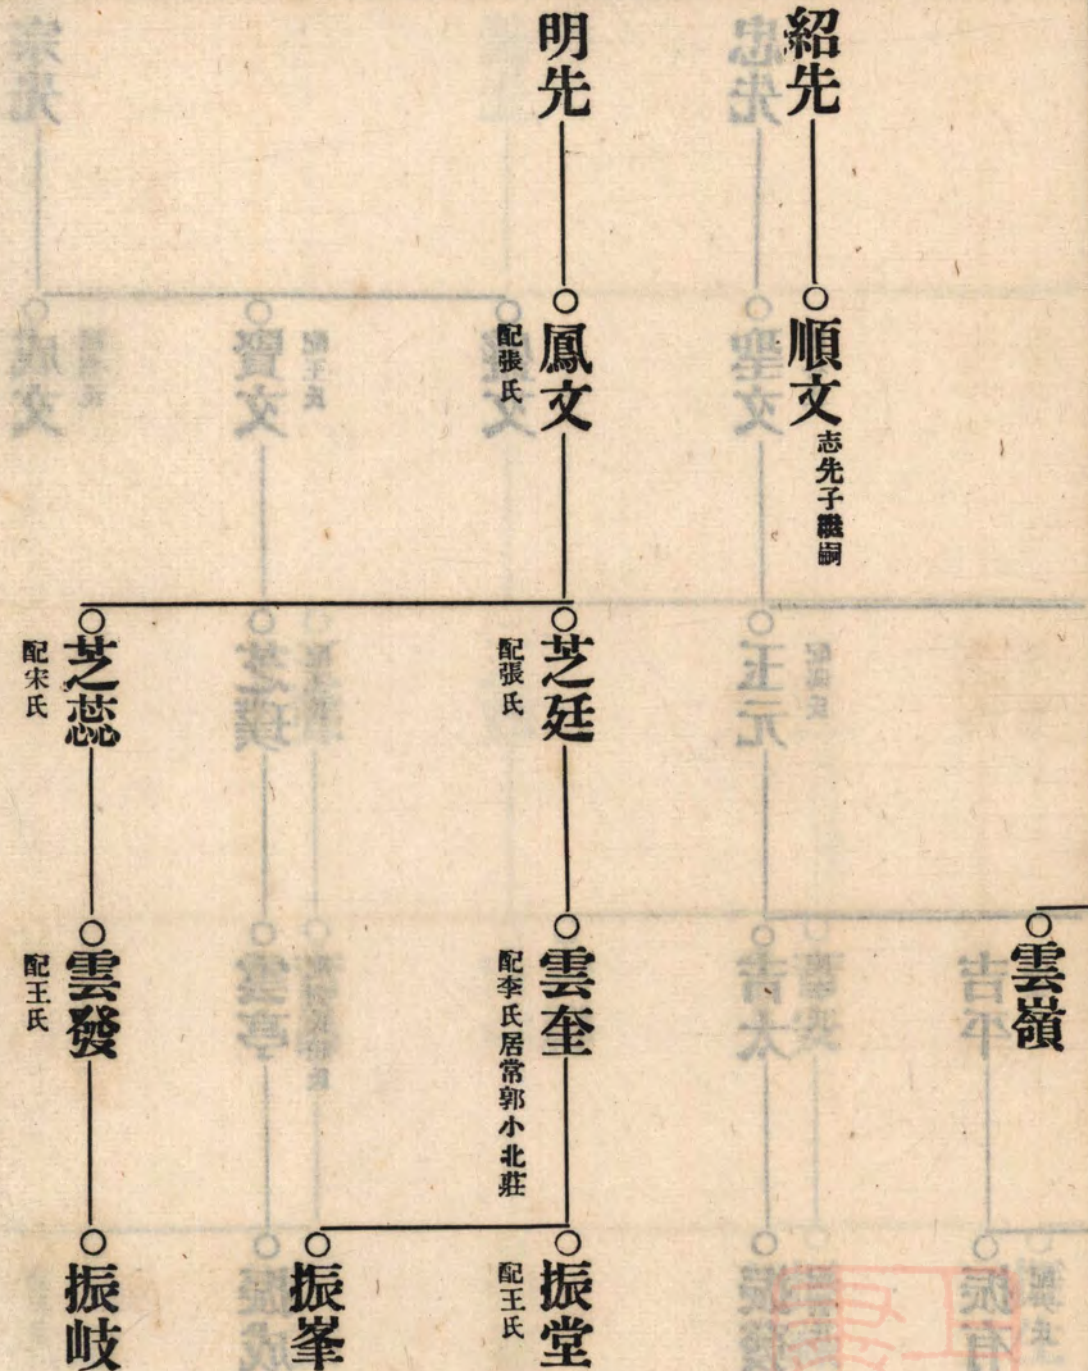 紹先
順文
志先子繼嗣
雲嶺
明先
鳳文
配張氏
芝廷
配張氏
雲奎
配李氏居常郭小北莊
振堂
配王氏
振峯
芝蕊
配宋氏
雲發
配王氏
振岐